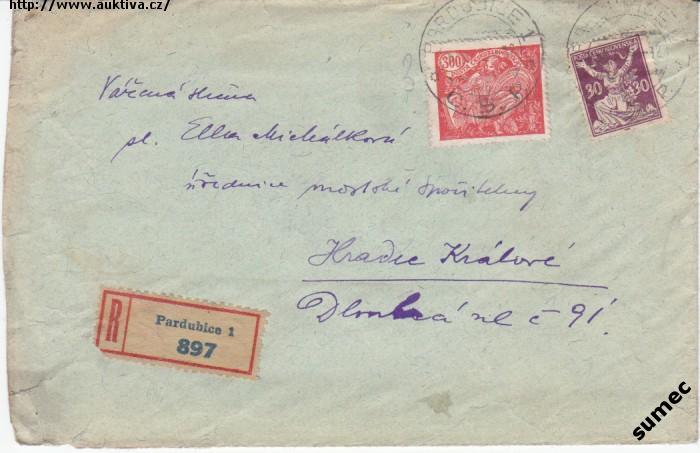 http://www.auktiva.cz/
PARDUBICE 1
300
30 30
Vážená slečna
sl. Ella Michálková
úřednice městské spořitelny
Hradec Králové
Dlouhá ul č 91
R
Pardubice 1
897
sumec